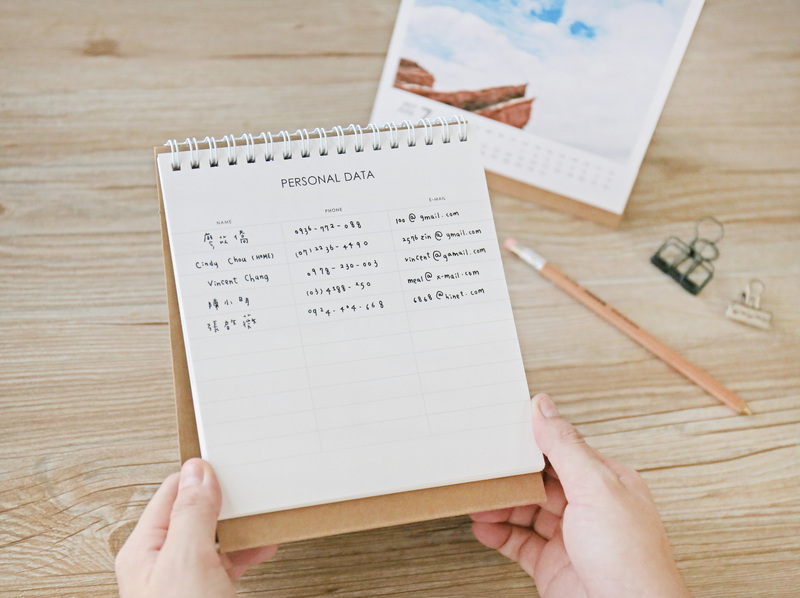 PERSONAL DATA
NAME PHONE E-MAIL
0936-972-088 100@gmail.com
Cindy Chou (HOME) (07)2236-4490 2576zin@gmail.com
Vincent Chang 0978-230-003 vincent@gamail.com
陳小明 meal@x-mail.com
0924-404-668 6868@hinet.com